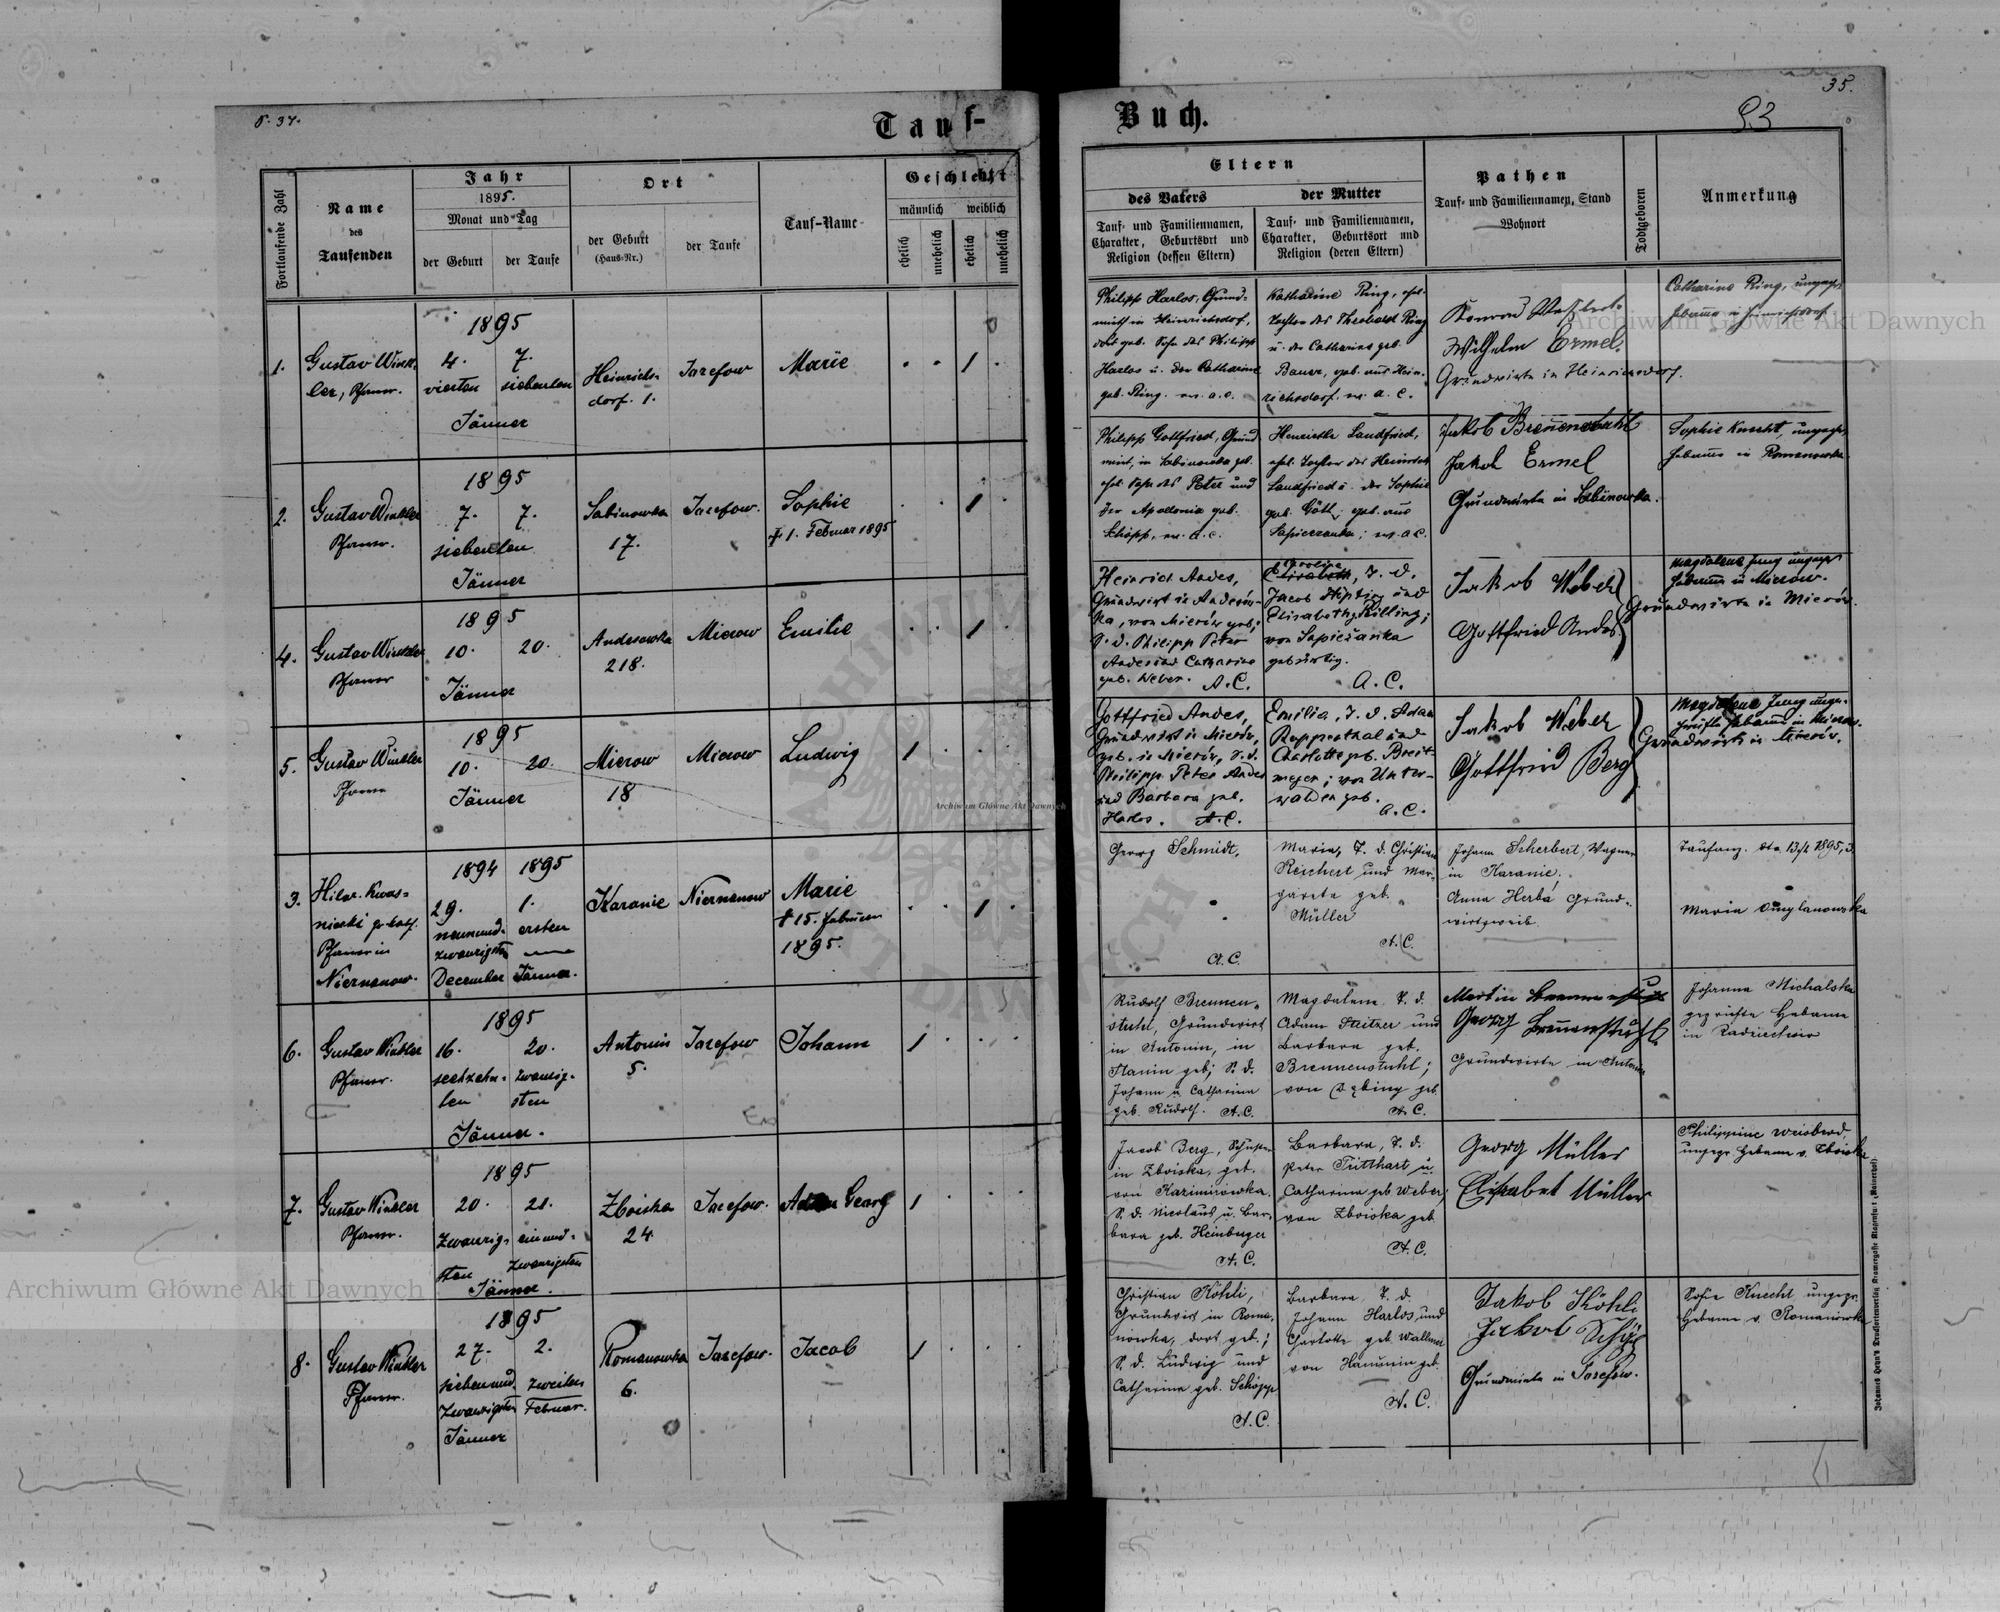 S. 34.
Tauf-
Fortlaufende Zahl
Name
des
Taufenden
Jahr
1895.
Monat und Tag
der Geburt
der Taufe
Ort
der Geburt
(Haus-Nr.)
der Taufe
Tauf-Name
Geschlecht
männlich
weiblich
ehelich
unehelich
ehelich
unehelich
1895
1. Gustav Wink- 4. 7. Heinrichs- Jozefow Marie 1
ler, Pfarrer. vierten siebenten dorf. 1.
Jänner
1895
2. Gustav Winkler 7. 7. Sabinowka Jozefow. Sophie 1
Pfarrer. siebenten 17. † 1. Februar 1895
Jänner
1895
4. Gustav Winkler 10. 20. Andesowka Mierow Emilie 1
Pfarrer 218.
Jänner
1895
5. Gustav Winkler 10. 20. Mierow Mierow Ludwig 1
Pfarrer Jänner 18
1894 1895
3. Hilar. Kwas- 29. 1. Karanie Niernanow Marie 1
nicki gr. kath. neunund- ersten † 15. Februar
Pfarrer in zwanzigsten 1895.
Niernanow. December Jänner.
1895
6. Gustav Winkler 16. 20. Antonin Jozefow Johann 1
Pfarrer. sechzehn- zwanzig- 5.
ten sten
Jänner.
1895
7. Gustav Winkler 20. 21. Zboiska Jozefow. Georg 1
Pfarrer. zwanzig- einund- 24.
sten zwanzigsten
Jänner.
1895
8. Gustav Winkler 27. 2. Romanowka Jozefow. Jacob 1
Pfarrer. siebenund- zweiten 6.
zwanzigsten Februar.
Jänner
35.
93
Buch.
Eltern
des Vaters
der Mutter
Tauf- und Familiennamen,
Charakter, Geburtsort und
Religion (dessen Eltern)
Tauf- und Familiennamen,
Charakter, Geburtsort und
Religion (deren Eltern)
Pathen
Tauf- und Familiennamen, Stand
Wohnort
Todtgeboren
Anmerkung
Philipp Harlos, Grund-
wirth in Heinrichsdorf,
dort geb. Sohn des Philipp
Harlos u. der Catharine
geb. Ring. ev. a. c.
Katharine Ring, ehel.
Tochter des Theobald Ring
u. der Catharina geb.
Bauer, geb. aus Hein-
richsdorf. ev. a. c.
Konrad
Wilhelm Ermel.
Grundwirte in Heinrichsdorf.
Catharina Ring, ungepr.
Hebamme in Heinrichsdorf
Philipp Gottfried, Grund-
wirt, in Sabinowka geb.
ehel. Sohn des Peter und
der Apollonia geb.
Schöpp, ev. a. c.
Henriette Landfried,
ehel. Tochter des Heinrich
Landfried u. der Sophie
geb. Göttl, geb. aus
Sapiezanka; ev. a c.
Jakob Brennenstuhl
Jakob Ermel
Grundwirte in Sabinowka.
Sophie Knecht, ungepr.
Hebamme in Romanowka
Heinrich Andes,
Grundwirt in Andesów-
ka, von Mierów geb.,
S. d. Philipp Peter
Andes und Catharina
geb. Weber. A. C.
Carolina
Elisabeth, T. d.
Jacob Hiptig und
Elisabeth g. Rilling;
von Sapieżanka
gebürtig.
A. C.
Jakob Weber
Gottfried Andes
Grundwirte in Mierów.
Magdalena Jung ungepr
Hebamme in Mierów.
Gottfried Andes,
Grundwirt in Mierów,
geb. in Mierów, S. d.
Philipp Peter Andes
und Barbara geb.
Harlos. A. C.
Emilia, T. d. Adam
Rupperthal und
Charlotte geb. Breit-
meyer; von Unter-
walden geb.
A. C.
Jakob Weber
Gottfried Berg
Grundwirte in Mierów.
Magdalena Jung unge-
prüfte Hebamme in Mierow.
Georg Schmidt,
A. C.
Maria, T. d. Christian
Reichert und Mar-
gareta geb.
Müller
A. C.
Johann Scherbert, Wagner
in Karanie.
Anna Herba Grund-
wirtsweib.
Taufanz. dto 13/2 1895, 3.
Maria
Rudolf Brennen-
stuhl, Grundwirt
in Antonin, in
Hanin geb; S. d.
Johann u Catharina
geb. Rudolf. A. C.
Magdalena T. d.
Adam Steitzer und
Barbara geb.
Brennenstuhl;
von Dębiny geb.
A. C.
Martin Brennenstuhl
Georg Brennenstuhl
Grundwirte in Antonin
Johanna Michalska
geprüfte Hebame
in Radziechow
Jacob Berg, Schuster
in Zboiska, geb.
von Kazimirowka.
S. d. Nicolaus u. Bar-
bara geb. Heinburger
A. C.
Barbara, T. d.
Peter Tritthart u.
Catharina geb. Weber,
von Zboiska geb.
A. C.
Georg Müller
Elisabet Müller
Philippine Weisbrod,
ungepr Hebame v. Zboiska
Christian Köhli,
Grundwirt in Roma-
nowka, dort geb.;
S. d. Ludwig und
Catharina geb. Schöpp
A. C.
Barbara T. d.
Johann Harlos, und
Charlotte geb. Wallmer
von Hanunin geb.
A. C.
Jakob Köhli
Jakob Schöpp
Grundwirte in Josefow.
Sofie Knecht ungepr.
Hebame v. Romanowka
Johannes Heyn's Druckereiverlag, Kramergasse Klagenfurt (Mainerhof).
Archiwum Główne Akt Dawnych
Archiwum Główne Akt Dawnych
Archiwum Główne Akt Dawnych